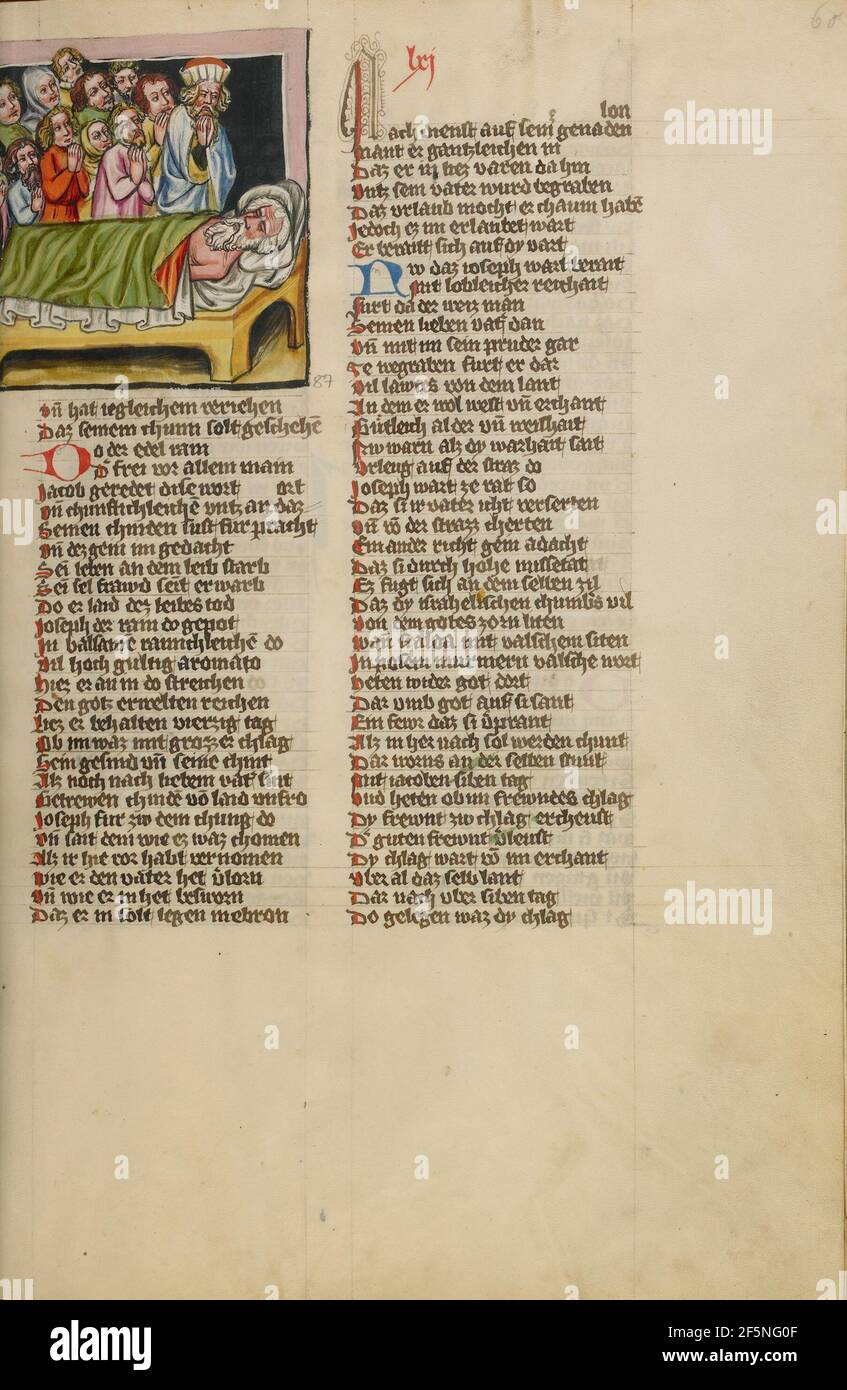 60
87
vñ hat iegleichem veriehen
Daz seinem chunn solt geschehē
Do der edel man
Dˢ frei vor allem main
Jacob geredet dise wort
ort
vñ chunftichleichē vntz an daz
Seinen chinden sust fur pracht
vñ dez gein im gedacht
Sei leben an dem leib starb
Sei sel frawd seit erwarb
Do er laid dez leibes tod
Joseph der rain do gepot
In balsamē raimchleichē do
Vil hoch gultig aromato
Hiez er an in do streichen
Den gotz erwelten reichen
Liez er behalten vierzig tag
Ob im waz mit grozzer chlag
Sein gesind vñ seine chint
Alz noch nach liebem vatˢ sint
Getrewen chindē vō laid vnfro
Joseph fur zw dem chung do
vñ sait dem wie ez waz chomen
Alz ir hie vor habt vernomen
wie er den vater het vˢlorn
vñ wie er in het besworn
Daz er in solt legen in ebron
lxj
lon
Nach dienst auf sein genaden
mant er gantzleichen in
Daz er in liez varen da hin
vntz sein vater wurd begraben
Daz vrlaub mocht er chaum habē
Jedoch ez im erlaubet wart
Er berait sich auf dy vart
Nw daz ioseph wart berait
mit lobleicher reichait
furt da der weiz man
Seinen lieben vatˢ dan
vñ mit im sein pruder gar
Ze wegraben furt er dar
vil lawts von dem lant
In dem er wol west vñ erchant
Gutleich alder vñ weishait
Nw warn alz dy warhait sait
vrleug auf der straz do
Joseph wart ze rat so
Daz si ir vater icht verserten
vñ vō der strazz cherten
Ein ander richt gein adacht
Daz si durch hohe missetat
Ez fugt sich an dem selben zil
Daz dy israhelischen chunns vil
von dem gotes zorn liten
wan si alda mit valschem siten
heten wider got dort
Dar vmb got auf si sant
Ein fewr daz si vˢprant
Alz in her nach sol werden chunt
Dar warns an der selben stunt
mit iacoben siben tag
vnd heten ob im frewndes chlag
Dy frewnt zw chlag ercheust
Dˢ guten frewnt vˢleust
Dy chlag wart vō im erchant
vber al daz selb lant
Dar nach vber siben tag
Do gelegen waz dy chlag
alamy
alamy
Image ID: 2F5NG0F
www.alamy.com